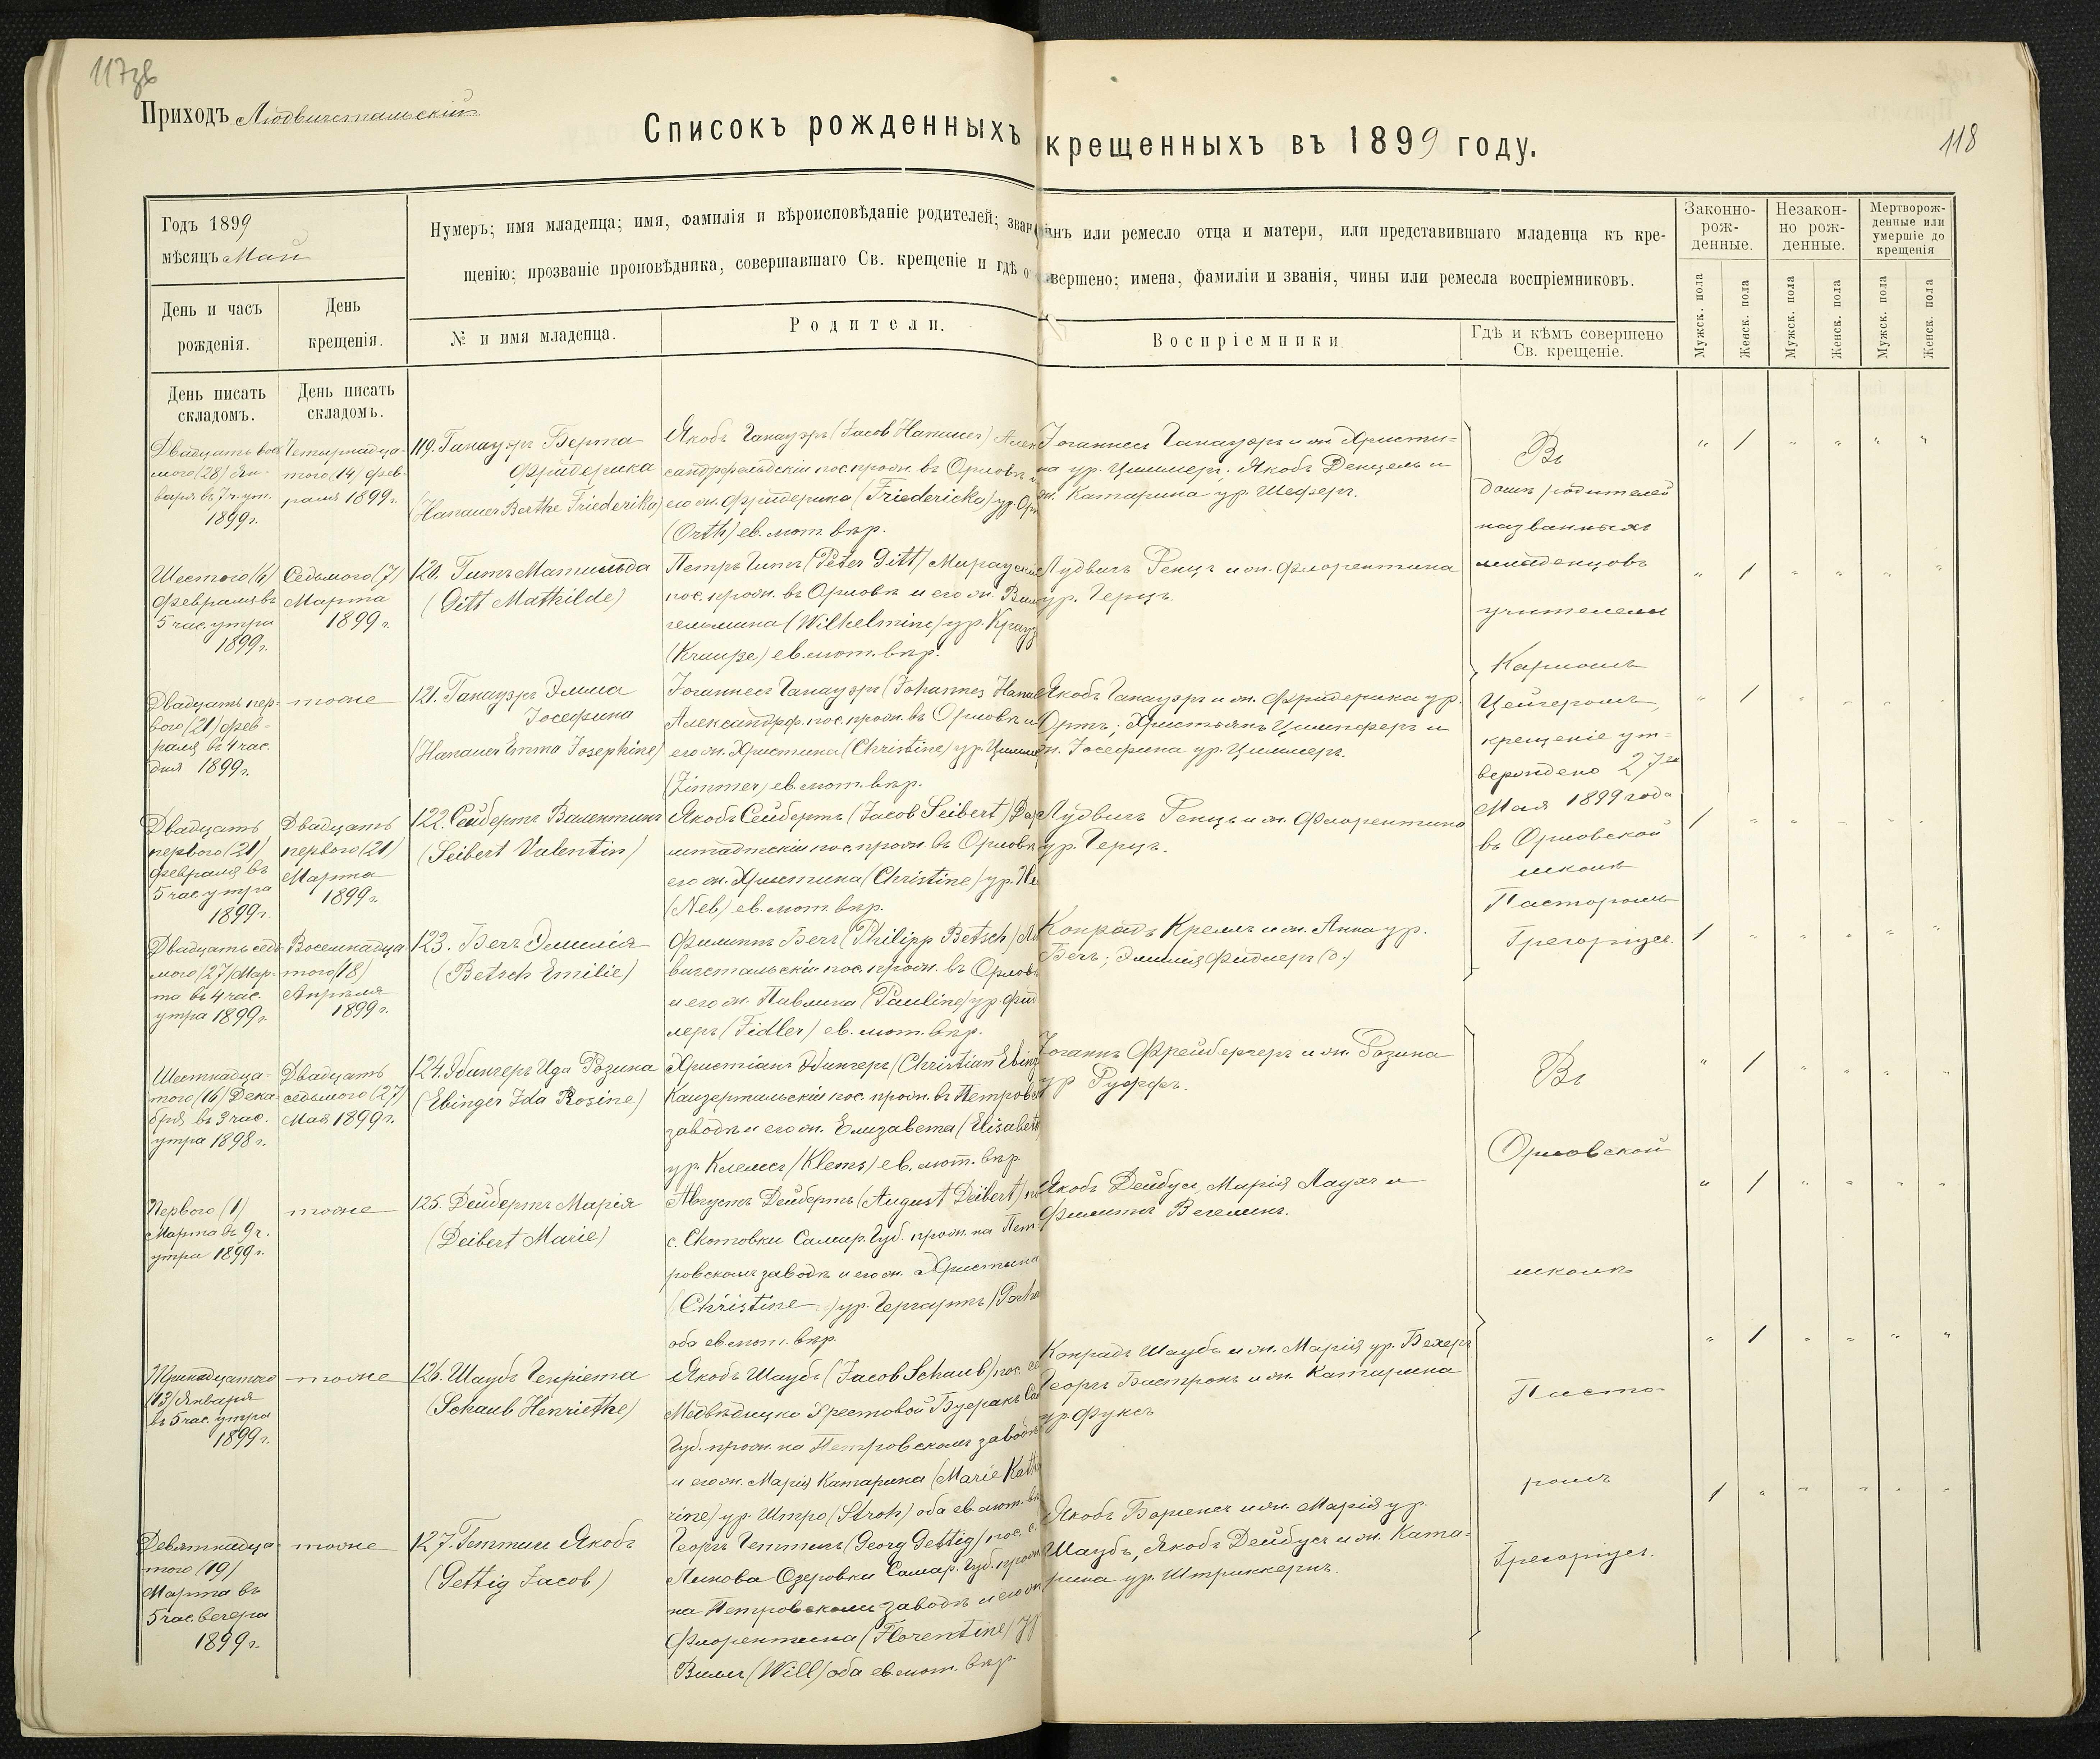 117зв
Приходъ Людвигстальскій
Списокъ рожденныхъ крещенныхъ въ 1899 году.
118
Годъ 1899
мѣсяцъ Май
Нумеръ; имя младенца; имя, фамилія и вѣроисповѣданіе родителей; зван чинъ или ремесло отца и матери, или представившаго младенца къ кре-
щенію; прозваніе проповѣдника, совершавшаго Св. крещеніе и гдѣ о вершено; имена, фамиліи и званія, чины или ремесла воспріемниковъ.
Законно-
рож-
денные.
Незакон-
но рож-
денные.
Мертворож-
денные или
умершіе до
крещенія
День и часъ
рожденія.
День
крещенія.
№ и имя младенца.
Родители.
Воспріемники
Гдѣ и кѣмъ совершено
Св. крещеніе.
Мужск. пола
Женск. пола
Мужск. пола
Женск. пола
Мужск. пола
Женск. пола
День писать
складомъ.
День писать
складомъ.
Двадцать вось
мого (28) Ян-
варя въ 7 ч. ут.
1899 г.
Четырнадца-
того (14) Фев-
раля 1899 г.
119. Ганауэръ Берта
Фридерика
(Hanauer Berthe Friederika)
Якобъ Ганауэръ (Jacob Hanauer) Алек
сандрфельдскій пос. прож. въ Орловкѣ и
его ж. Фридерика (Friedericka) ур. Ор
(Orth) ев. лют. вѣр.
Іоганнесъ Ганауэръ и ж. Христи-
на ур. Циммеръ; Якобъ Денцель и
ж. Катарина ур. Шеферъ.
Въ
домѣ родителей
названныхъ
младенцовъ
учителемъ
Карломъ
Цейгеромъ,
крещеніе ут-
верждено 27го
Мая 1899 года
въ Орловской
школѣ
Пасторомъ
Грегоріусъ.
" 1 " " " "
Шестого (6)
Февраля въ
5 час. утра
1899 г.
Седьмого (7)
Марта
1899 г.
120. Гитъ Матильда
(Gitt Mathilde)
Петръ Гитъ (Peter Gitt) Мираускій
пос. прож. въ Орловкѣ и его ж. Вил
гельмина (Wilhelmine) ур. Крауз
(Krauße) ев. лют. вѣр.
Лудвигъ Ренцъ и ж. Флорентина
ур. Герцъ.
" 1 " " " "
Двадцать пер-
вого (21) Фев-
раля въ 4 час.
дня 1899 г.
тоже
121. Ганауэръ Эмма
Іосефина
(Hanauer Emma Josephine)
Іоганнесъ Ганауэръ (Johannes Hanau
Александрф. пос. прож. въ Орловкѣ и
его ж. Христина (Christine) ур. Цимме
(Zimmer) ев. лют. вѣр.
Якобъ Ганауэръ и ж. Фридерика ур.
Ортъ; Христьянъ Цимпферъ и
ж. Іосефина ур. Циммеръ.
" 1 " " " "
Двадцать
перваго (21)
Февраля въ
5 час. утра
1899 г.
Двадцать
перваго (21)
Марта
1899 г.
122. Сейбертъ Валентинъ
(Seibert Valentin)
Якобъ Сейбертъ (Jacob Seibert) Дар
мштадтскій пос. прож. въ Орловк
его ж. Христина (Christine) ур. Не
(Neb) ев. лют. вѣр.
Лудвигъ Ренцъ и ж. Флорентина
ур. Герцъ.
1 " " " " "
Двадцать седь
мого (27) Мар-
та въ 4 час.
утра 1899 г.
Восемнадца
того (18)
Апрѣля
1899 г.
123. Бечъ Эмилія
(Betsch Emilie)
Филиппъ Бечъ (Philipp Betsch) Лю
вигстальскій пос. прож. въ Орлов
и его ж. Павлина (Pauline) ур. Фид
леръ (Fidler) ев. лют. вѣр.
Конрадъ Кремъ и ж. Анна ур.
Бечъ; Эмилія Фидлеръ (д.)
1 " " " " "
Шестнадца-
того (16) Дека
бря въ 3 час.
утра 1898 г.
Двадцать
седьмого (27)
Мая 1899 г.
124. Эбингеръ Ида Розина
(Ebinger Ida Rosine)
Христіанъ Эбингеръ (Christian Ebing
Кайзертальскій пос. прож. въ Петровск
заводѣ и его ж. Елизавета (Elisabeth
ур. Клемсъ (Klems) ев. лют. вѣр.
Іоганнъ Фрейбергеръ и ж. Розина
ур. Руффъ.
Въ
Орловской
школѣ
Пасто-
ромъ
Грегоріусъ.
" 1 " " " "
Перваго (1)
Марта въ 9 ч.
утра 1899 г.
тоже
125. Дейбертъ Марія
(Deibert Marie)
Августъ Дейбертъ (August Deibert) по
с. Скотовки Самар. Губ. прож. на Пет
ровскомъ заводѣ и его ж. Христина
(Christine) ур. Гергартъ
оба ев. лют. вѣр.
Якобъ Дейбусъ, Марія Лаухъ и
Филиппъ Вегелинъ.
" 1 " " " "
Тринадцатаго
(13) Января
въ 5 час. утра
1899 г.
тоже
126. Шаубъ Генріета
(Schaub Henriethe)
Якобъ Шаубъ (Jacob Schaub) пос. се
Медвѣдицко Хрестовой Буеракъ Са
Губ. прож. на Петровскомъ заводѣ
и его ж. Марія Катарина (Marie Katha
rine) ур. Штро (Stroh) оба ев. лют. вѣ
Конрадъ Шаубъ и ж. Марія ур. Бехеръ
Георгъ Бистронъ и ж. Катарина
ур. Фуксъ
" 1 " " " "
Девятнадца-
того (19)
Марта въ
5 час. вечера
1899 г.
тоже
127. Геттигъ Якобъ
(Gettig Jacob)
Георгъ Геттигъ (Georg Gettig) пос. с.
Линова Озеровки Самар. Губ. прож
на Петровскомъ заводѣ и его ж.
Флорентина (Florentine) ур
Вилль (Will) оба ев. лют. вѣр.
Якобъ Боргенсъ и ж. Марія ур.
Шаубъ, Якобъ Дейбусъ и ж. Ката-
рина ур. Штриккеръ.
1 " " " " "